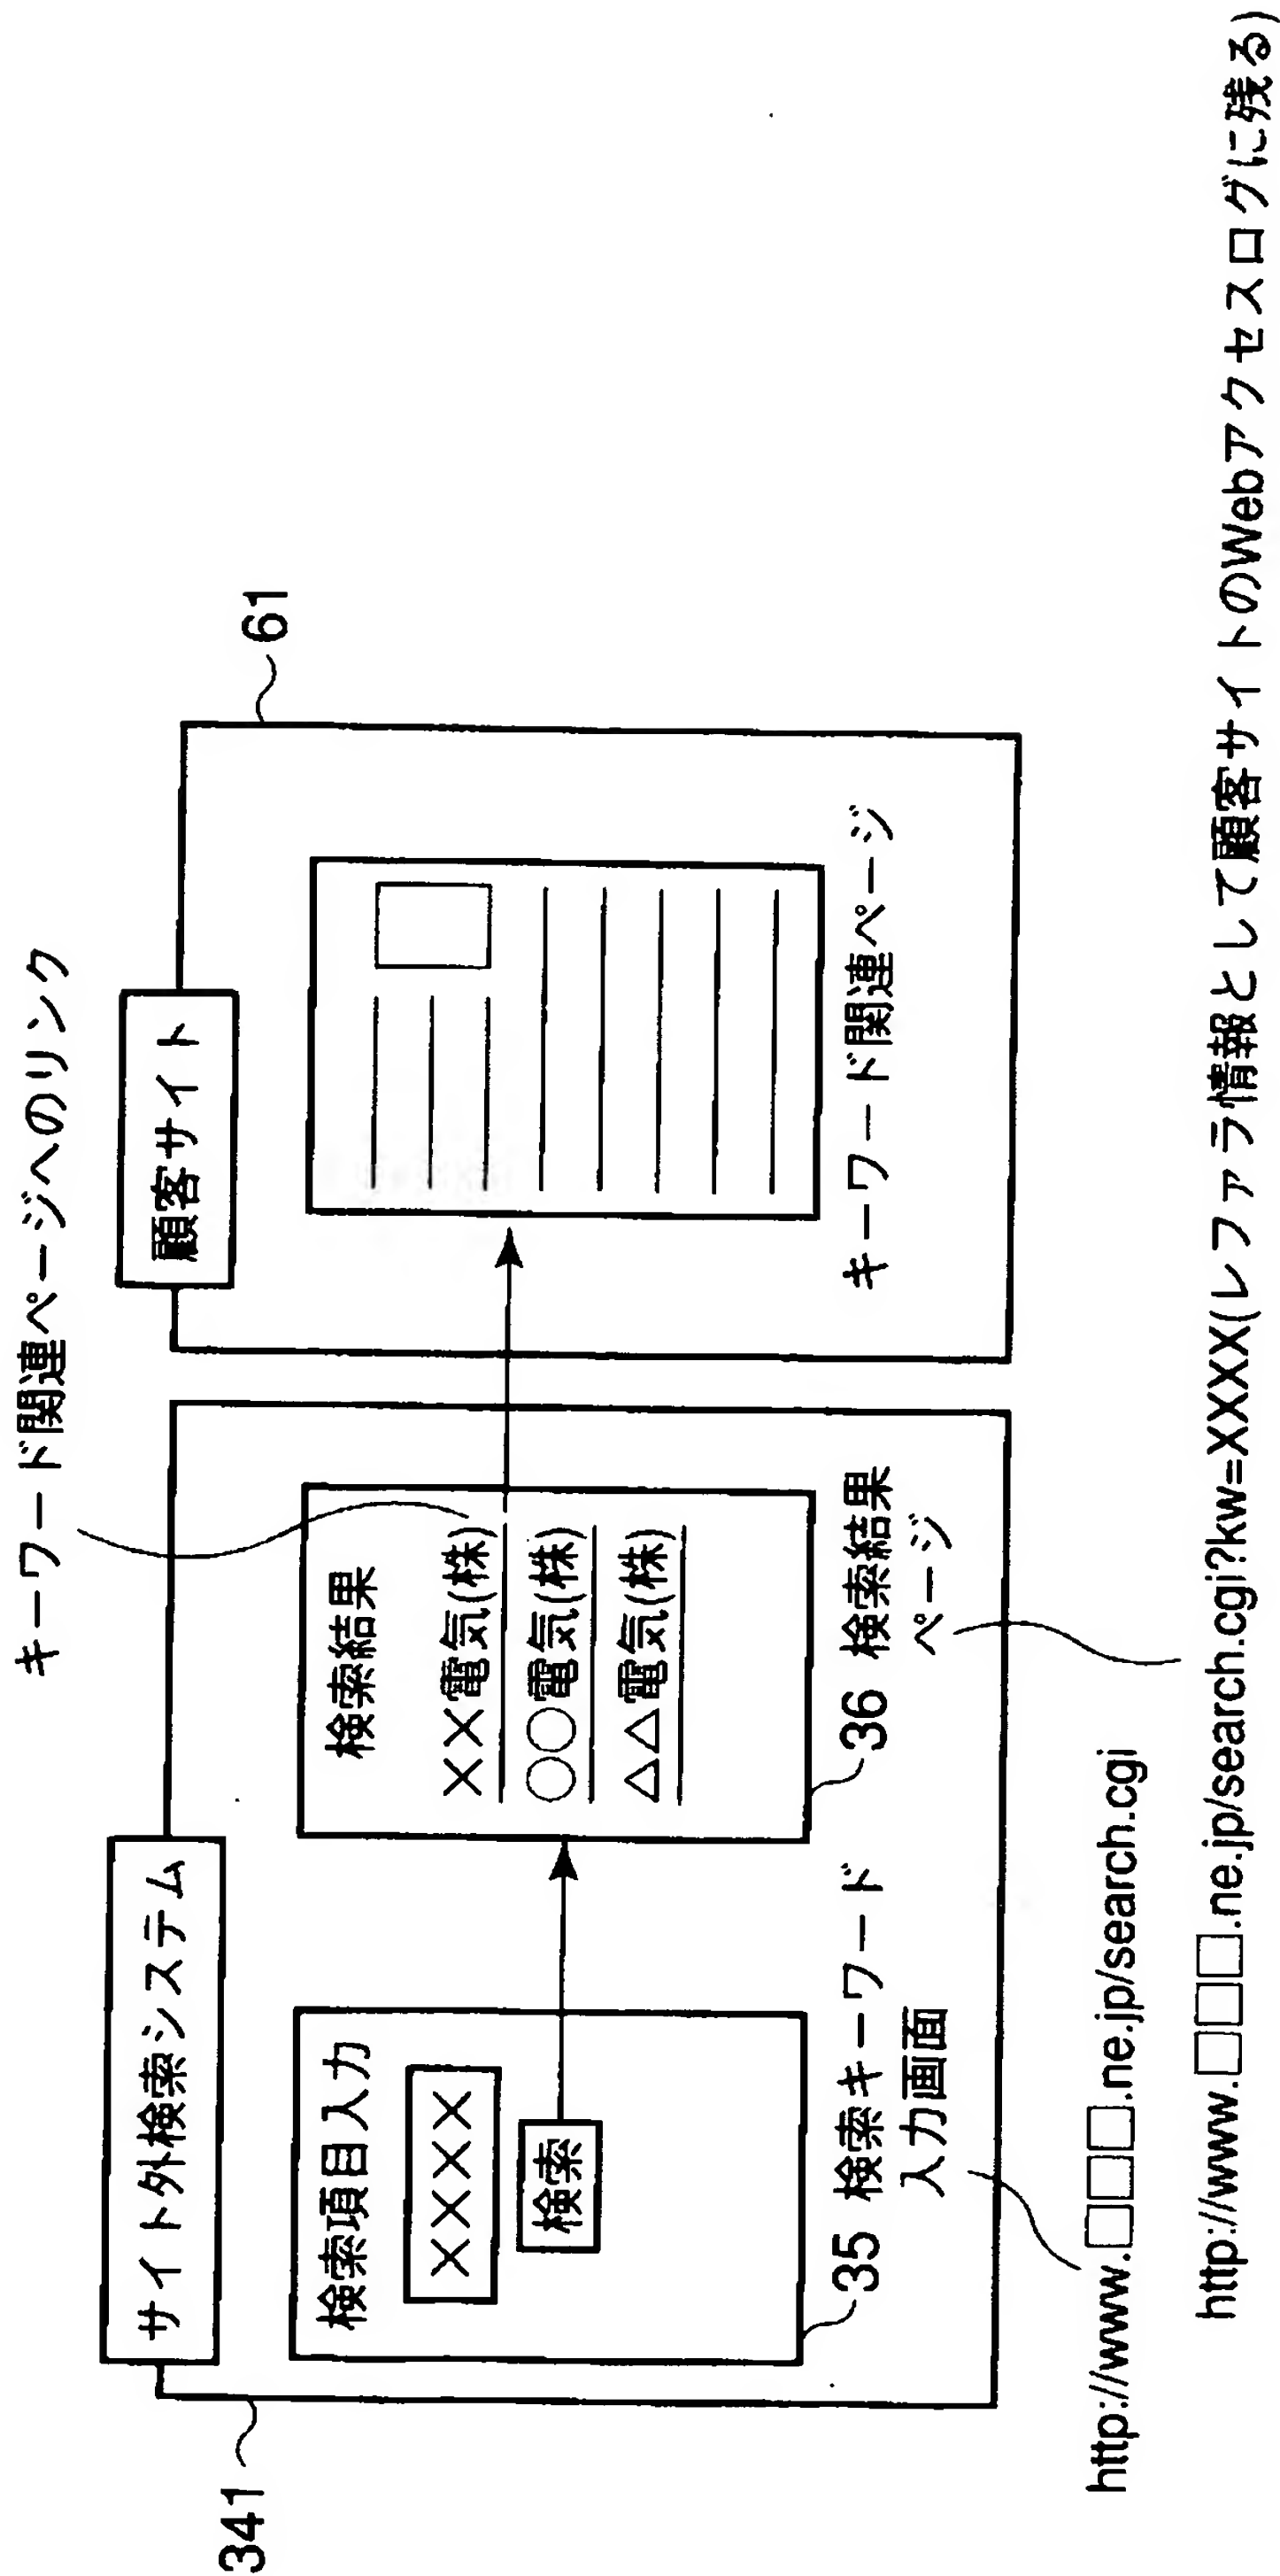 キーワード関連ページへのリンク
サイト外検索システム
顧客サイト
341
61
検索項目入力
××××
検索
35 検索キーワード
入力画面
検索結果
××電気(株)
○○電気(株)
△△電気(株)
36 検索結果
ページ
キーワード関連ページ
http://www.□□□.ne.jp/search.cgi
http://www.□□□.ne.jp/search.cgi?kw=XXXX(レファラ情報として顧客サイトのWebアクセスログに残る)